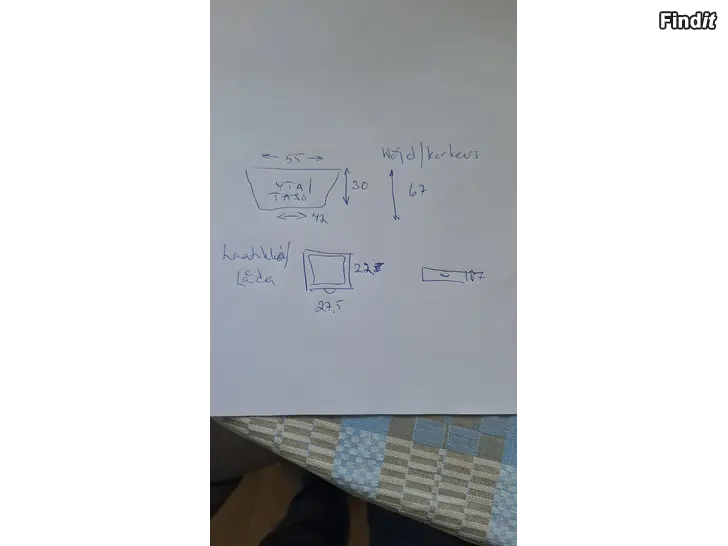 Findit
55
Höjd/korkeus
YTA/
TASO
30
67
42
Laatikko/
Låda
22
27,5
7